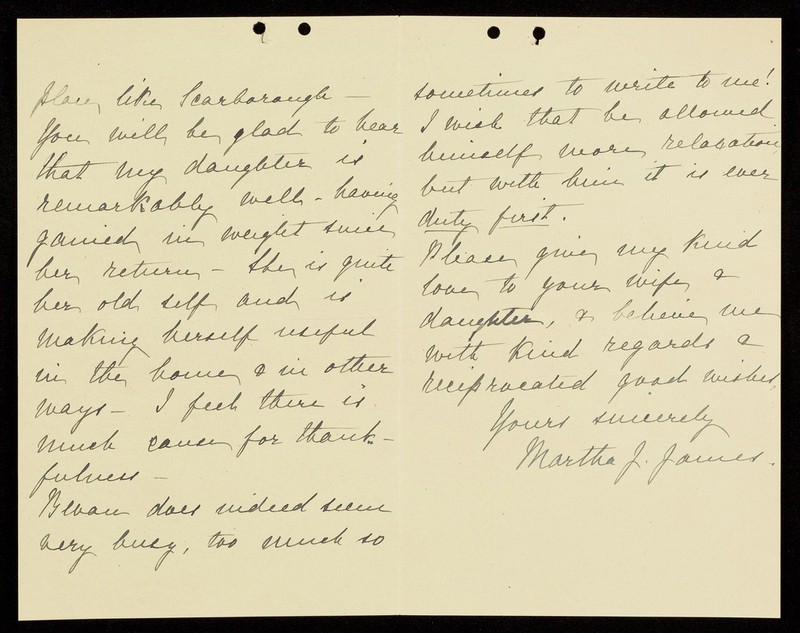 place like Scarborough —
You will be glad to hear
that my daughter is
remarkably well - having
gained in weight since
her return - She is quite
her old self and is
making herself useful
in the home & in other
ways - I feel there is
much cause for thank-
fulness -
Bevan does indeed seem
very busy, too much so
sometimes to write to me!
I wish that he allowed
himself more relaxation,
but with him it is ever
duty first.
Please give my kind
love to your wife &
daughter, & believe me
with kind regards &
reciprocated good wishes,
Yours sincerely
Martha J. James.